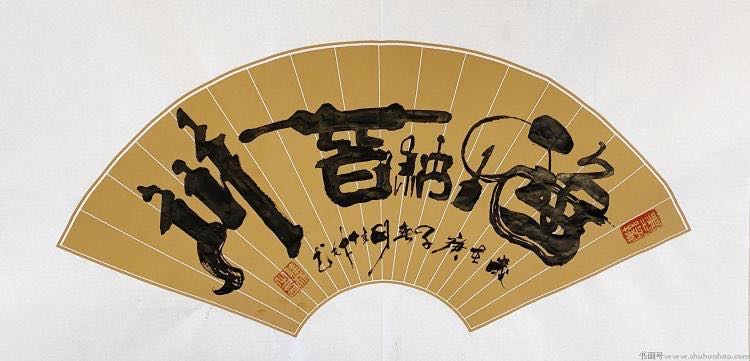 海納百川
歲在庚子春月
书画号www.shuhuahao.com